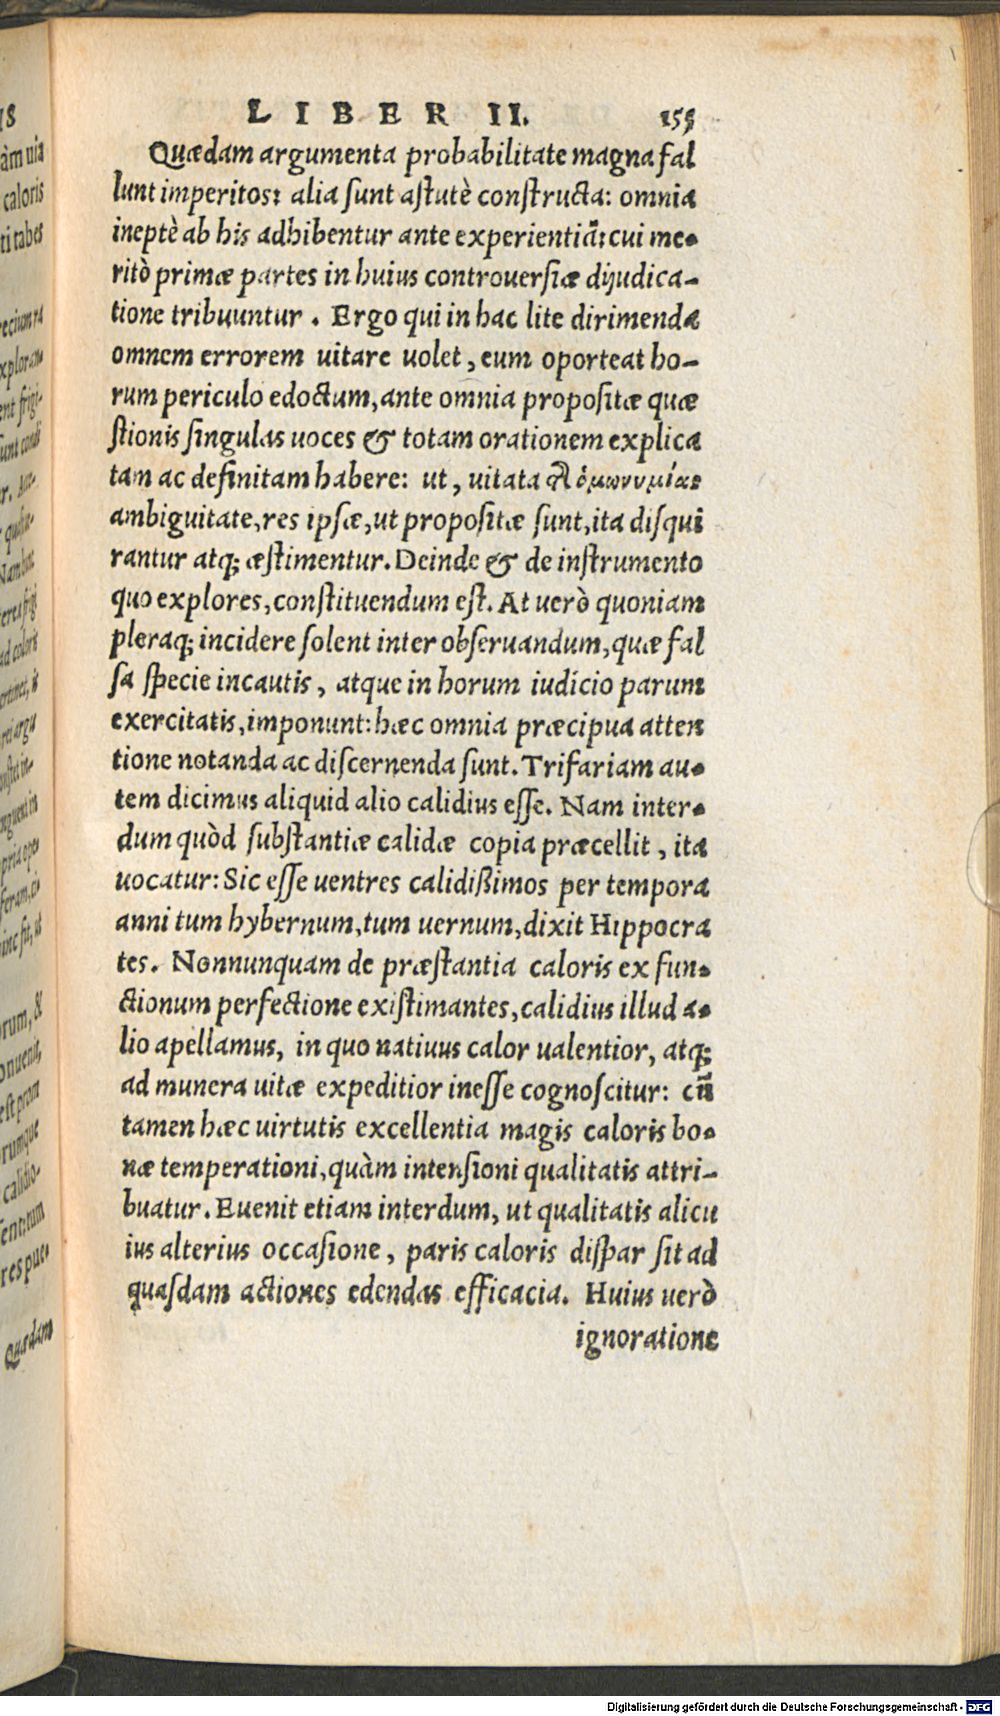 LIBER II. 155
Quædam argumenta probabilitate magna fal
lunt imperitos: alia sunt astutè constructa: omnia
ineptè ab his adhibentur ante experientiā: cui me-
ritò primæ partes in huius controuersiæ dijudica-
tione tribuuntur. Ergo qui in hac lite dirimenda
omnem errorem uitare uolet, eum oporteat ho-
rum periculo edoctum, ante omnia propositæ quæ
stionis singulas uoces & totam orationem explica
tam ac definitam habere: ut, uitata ὁμωνυμίας
ambiguitate, res ipsæ, ut propositæ sunt, ita disqui
rantur atq; æstimentur. Deinde & de instrumento
quo explores, constituendum est. At uerò quoniam
pleraq; incidere solent inter obseruandum, quæ fal
sa specie incautis, atque in horum iudicio parum
exercitatis, imponunt: hæc omnia præcipua atten
tione notanda ac discernenda sunt. Trifariam au-
tem dicimus aliquid alio calidius esse. Nam inter-
dum quòd substantiæ calidæ copia præcellit, ita
uocatur: Sic esse uentres calidißimos per tempora
anni tum hybernum, tum uernum, dixit Hippocra
tes. Nonnunquam de præstantia caloris ex fun-
ctionum perfectione existimantes, calidius illud a-
lio apellamus, in quo natiuus calor ualentior, atq;
ad munera uitæ expeditior inesse cognoscitur: cū
tamen hæc uirtutis excellentia magis caloris bo-
næ temperationi, quàm intensioni qualitatis attri-
buatur. Euenit etiam interdum, ut qualitatis alicu
ius alterius occasione, paris caloris dispar sit ad
quasdam actiones edendas efficacia. Huius uerò
ignoratione
18
àm uia
caloris
ti tabes
Quædam
Digitalisierung gefördert durch die Deutsche Forschungsgemeinschaft - DFG